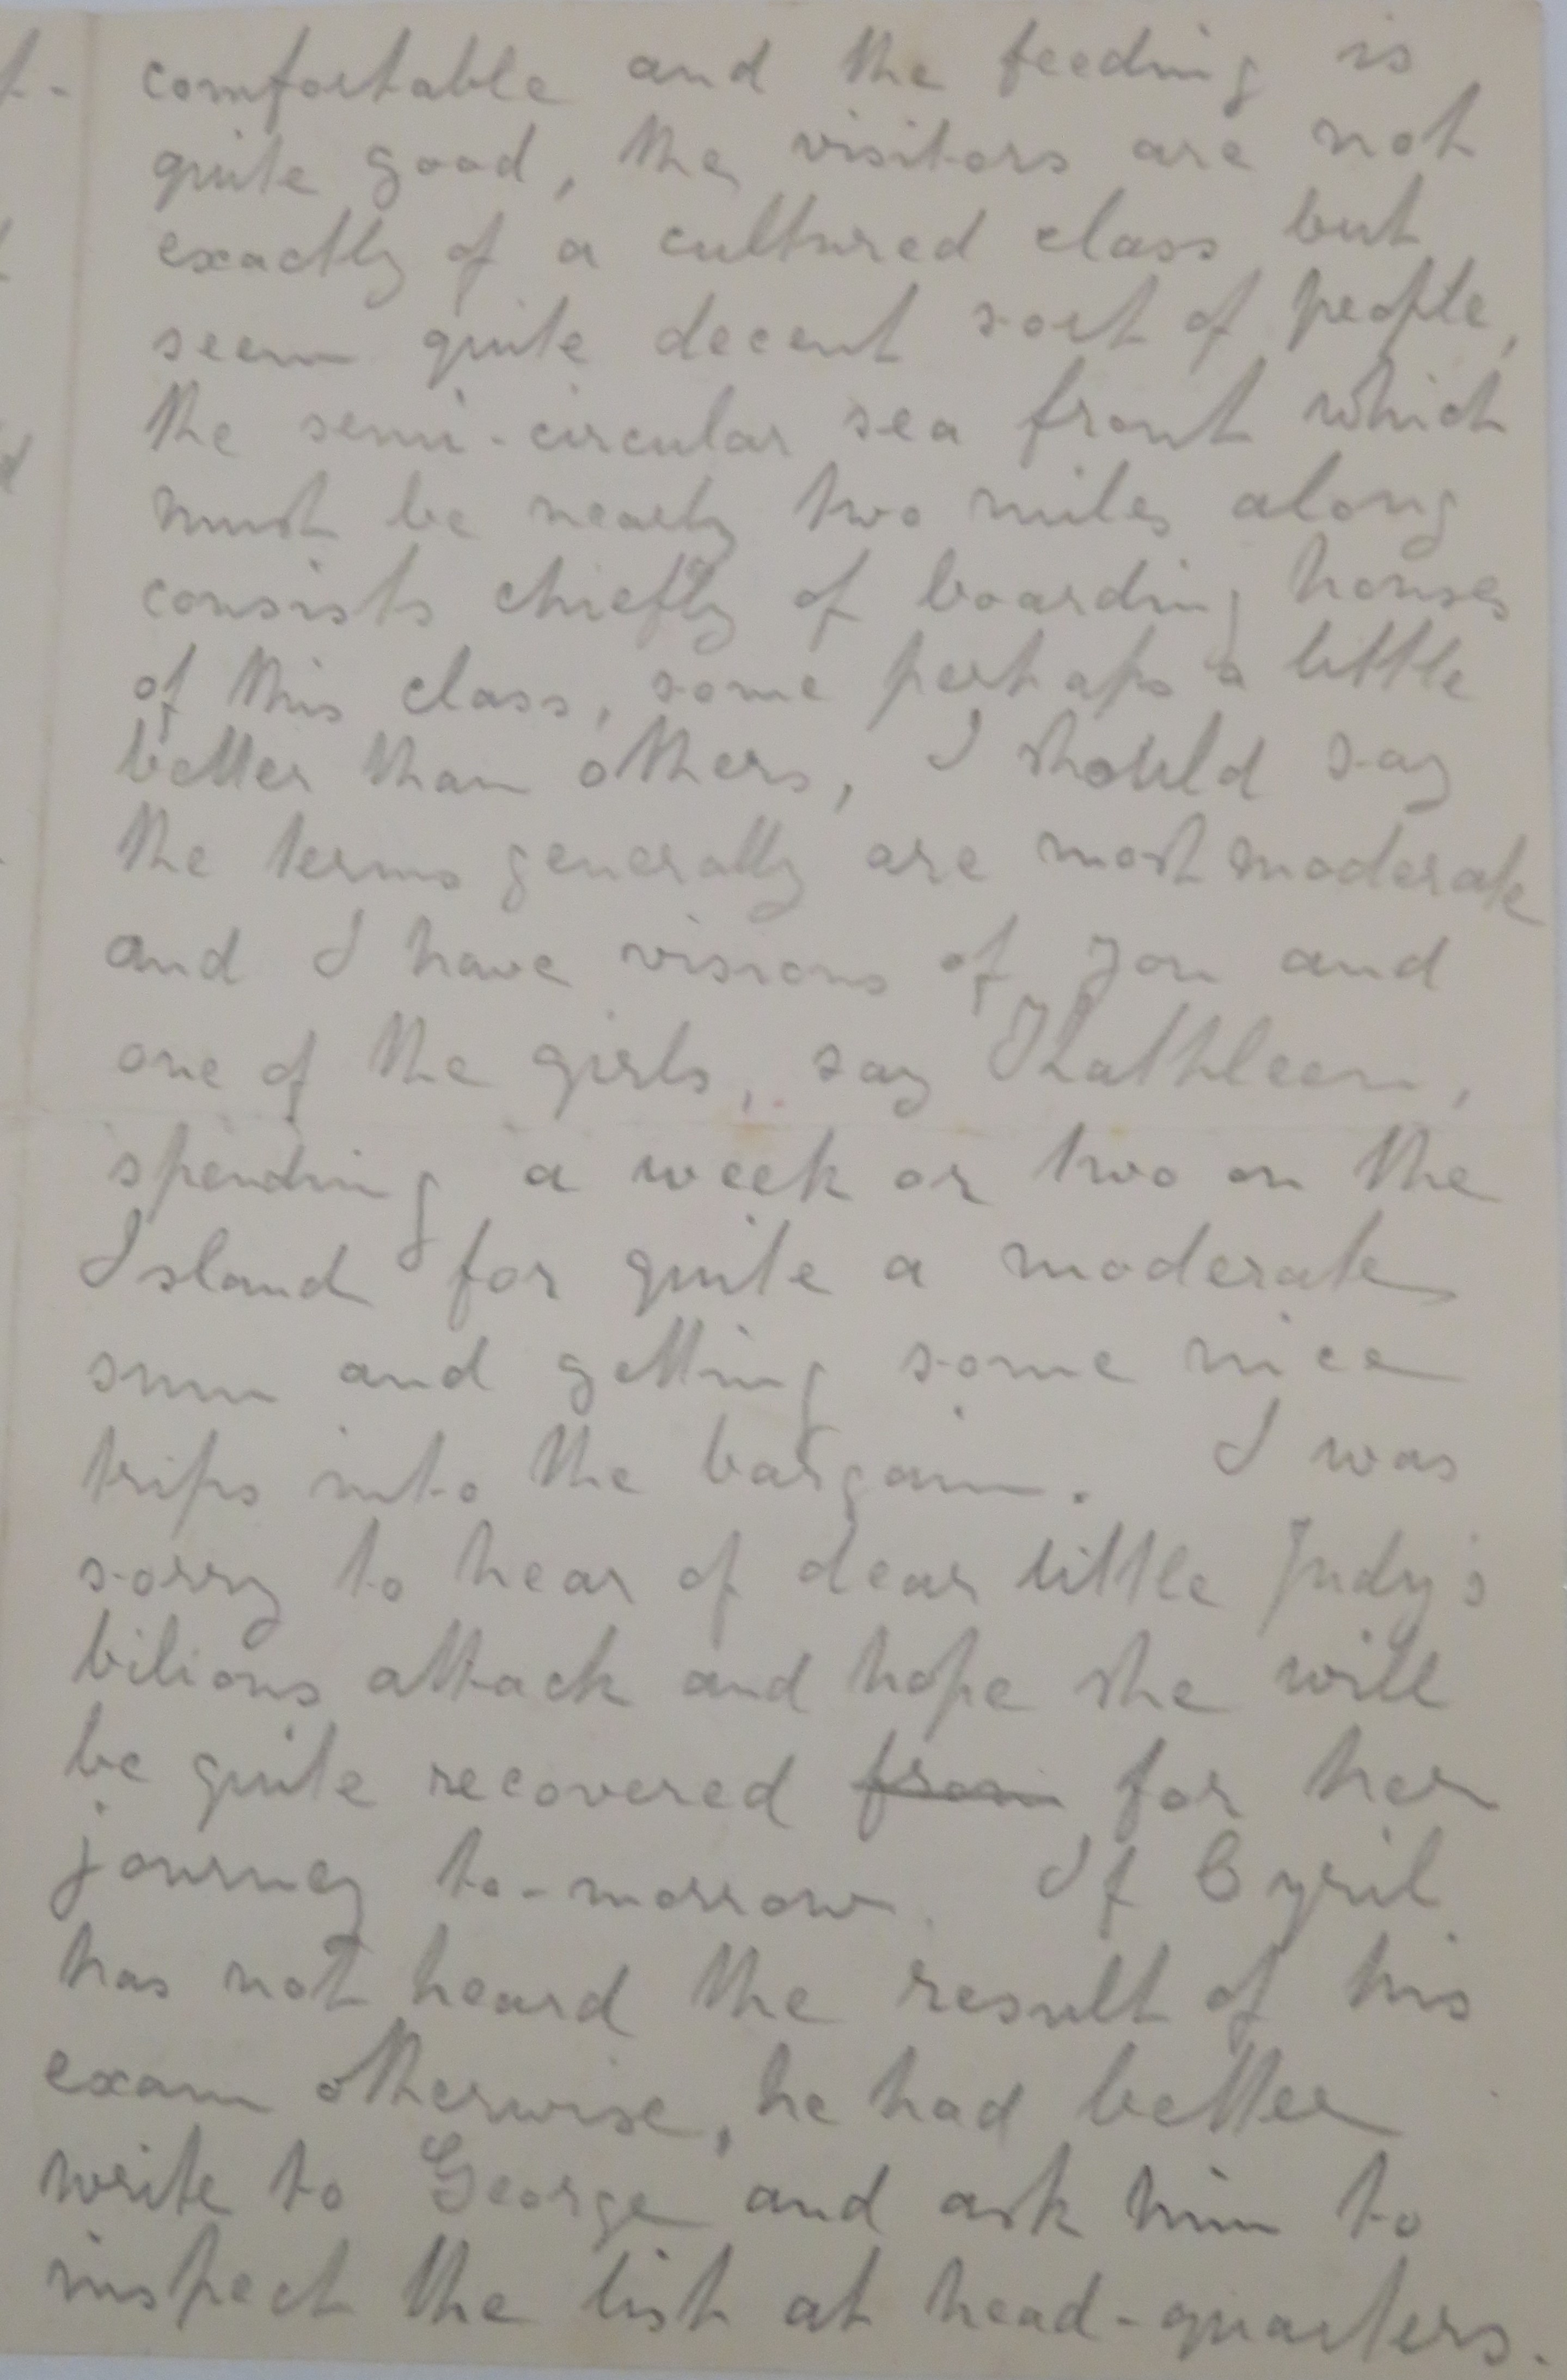 comfortable and the feeding is
quite good, the visitors are not
exactly of a cultured class but
seem quite decent sort of people,
the semi-circular sea front which
must be nearly two miles along
consists chiefly of boarding houses
of this class, some perhaps a little
better than others, I should say
the terms generally are most moderate
and I have visions of you and
one of the girls, say Kathleen,
spending a week or two on the
Island for quite a moderate
sum and getting some nice
trips into the bargain. I was
sorry to hear of dear little Judy's
bilious attack and hope she will
be quite recovered from for her
journey to-morrow. If Cyril
has not heard the result of his
exam otherwise, he had better
write to George and ask him to
inspect the list at head-quarters.